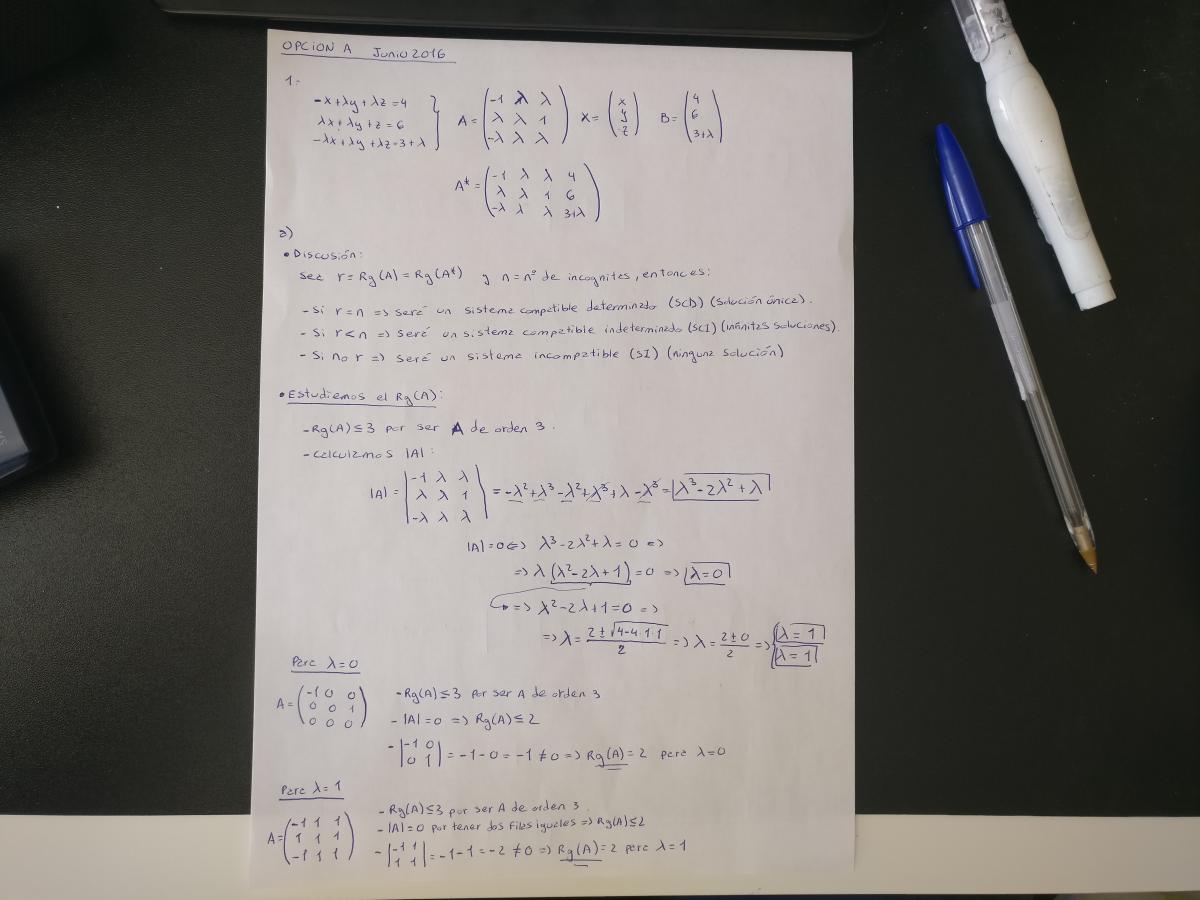 OPCION A Junio 2016
1.-
-x+λy+λz=4
λx+λy+z=6
-λx+λy+λz=3+λ
A = ( -1 λ λ / λ λ 1 / -λ λ λ ) X = ( x / y / z ) B = ( 4 / 6 / 3+λ )
A* = ( -1 λ λ 4 / λ λ 1 6 / -λ λ λ 3+λ )
a)
• Discusión:
sea r = Rg(A) = Rg(A*) y n = nº de incognitas, entonces:
- Si r = n => será un sistema compatible determinado (SCD) (solución única).
- Si r < n => será un sistema compatible indeterminado (SCI) (infinitas soluciones).
- Si no r => será un sistema incompatible (SI) (ninguna solución)
• Estudiamos el Rg(A):
- Rg(A) ≤ 3 por ser A de orden 3.
- calculamos |A|:
|A| = | -1 λ λ / λ λ 1 / -λ λ λ | = -λ²+λ³-λ²+λ³+λ-λ³ = λ³-2λ²+λ
|A| = 0 <=> λ³-2λ²+λ = 0 =>
=> λ (λ²-2λ+1) = 0 => λ=0
=> λ²-2λ+1=0 =>
=> λ = (2 ± √(4-4·1·1))/2 => λ = (2±0)/2 => { λ = 1 / λ = 1
Para λ=0
A = ( -1 0 0 / 0 0 1 / 0 0 0 )
- Rg(A) ≤ 3 por ser A de orden 3
- |A| = 0 => Rg(A) ≤ 2
- | -1 0 / 0 1 | = -1-0 = -1 ≠ 0 => Rg(A) = 2 para λ=0
Para λ=1
A = ( -1 1 1 / 1 1 1 / -1 1 1 )
- Rg(A) ≤ 3 por ser A de orden 3.
- |A| = 0 por tener dos filas iguales => Rg(A) ≤ 2
- | -1 1 / 1 1 | = -1-1 = -2 ≠ 0 => Rg(A) = 2 para λ=1